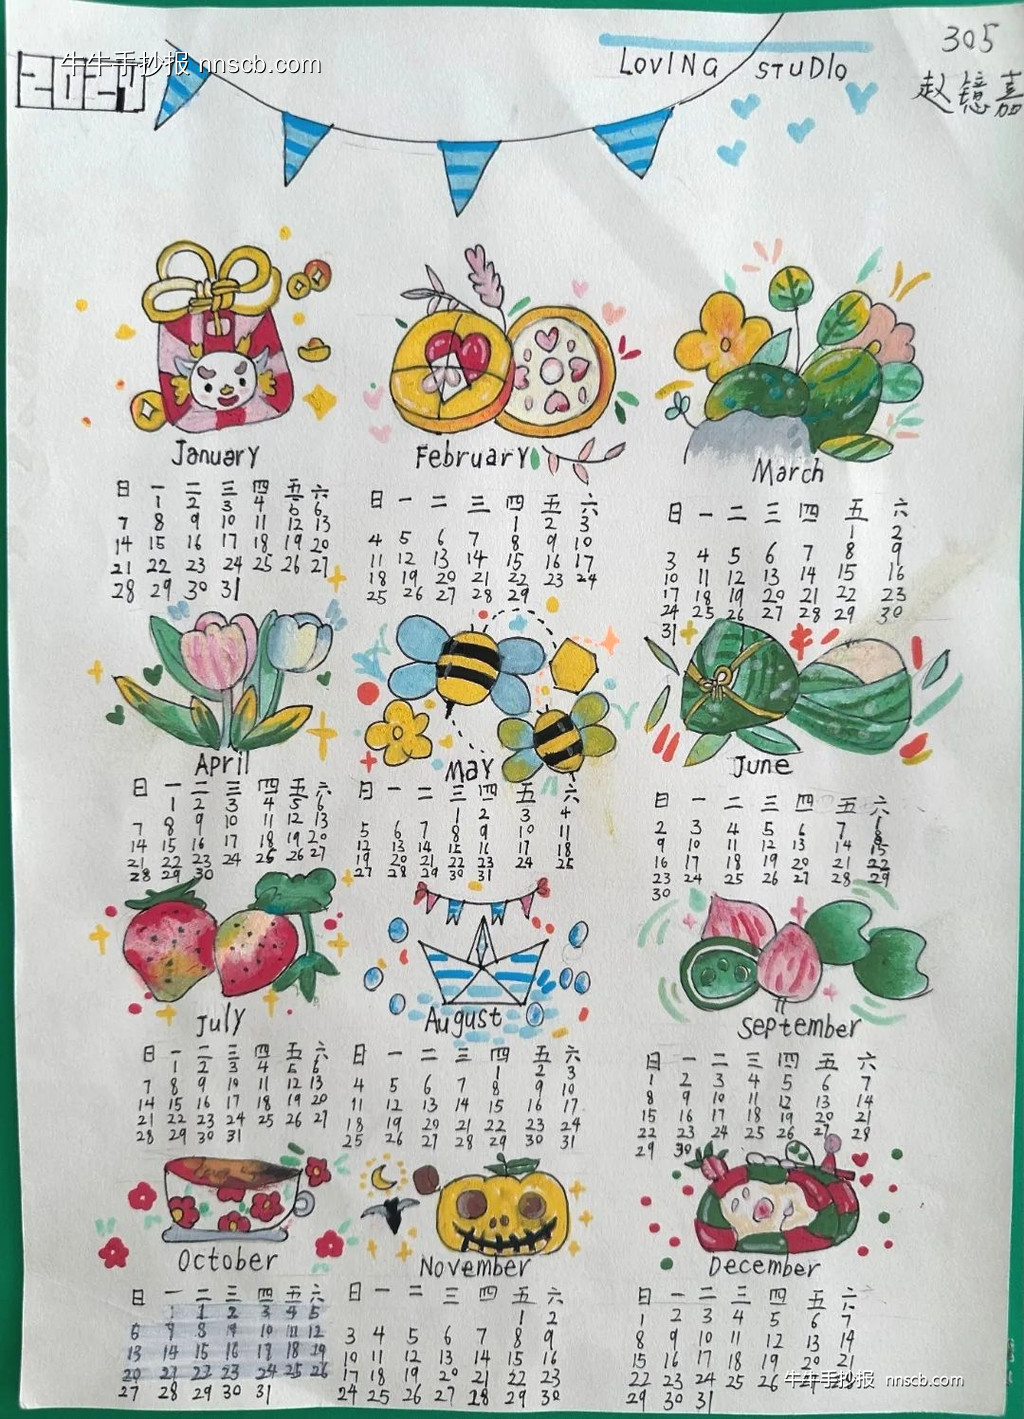 牛牛手抄报 nnscb.com
LOVING STUDIO
305
赵镱嘉
January
日 一 二 三 四 五 六
1 2 3 4 5 6
7 8 9 10 11 12 13
14 15 16 17 18 19 20
21 22 23 24 25 26 27
28 29 30 31
February
日 一 二 三 四 五 六
1 2 3
4 5 6 7 8 9 10
11 12 13 14 15 16 17
18 19 20 21 22 23 24
25 26 27 28 29
March
日 一 二 三 四 五 六
1 2
3 4 5 6 7 8 9
10 11 12 13 14 15 16
17 18 19 20 21 22 23
24 25 26 27 28 29 30
31
April
日 一 二 三 四 五 六
1 2 3 4 5 6
7 8 9 10 11 12 13
14 15 16 17 18 19 20
21 22 23 24 25 26 27
28 29 30
May
日 一 二 三 四 五 六
1 2 3 4
5 6 7 8 9 10 11
12 13 14 15 16 17 18
19 20 21 22 23 24 25
27 28 29 30 31
June
日 一 二 三 四 五 六
2 3 4 5 6 7 8
9 10 11 12 13 14 15
16 17 18 19 20 21 22
23 24 25 26 27 28 29
30
July
日 一 二 三 四 五 六
1 2 3 4 5 6
7 8 9 10 11 12 13
14 15 16 17 18 19 20
21 22 23 24 25 26 27
28 29 30 31
August
日 一 二 三 四 五 六
1 2 3
4 5 6 7 8 9 10
11 12 13 14 15 16 17
18 19 20 21 22 23 24
25 26 27 28 29 30 31
September
日 一 二 三 四 五 六
1 2 3 4 5 6 7
8 9 10 11 12 13 14
15 16 17 18 19 20 21
22 23 24 25 26 27 28
29 30
October
日 一 二 三 四 五 六
1 1 2 3 4 5
6 7 8 9 10 11 12
13 14 15 16 17 18 19
20 21 22 23 24 25 26
27 28 29 30 31
November
日 一 二 三 四 五 六
1 2
3 4 5 6 7 8 9
10 11 12 13 14 15 16
17 18 19 20 21 22 23
24 25 26 27 28 29 30
December
日 一 二 三 四 五 六
1 2 3 4 5 6 7
8 9 10 11 12 13 14
15 16 17 18 19 20 21
22 23 24 25 26 27 28
29 30 31
牛牛手抄报 nnscb.com